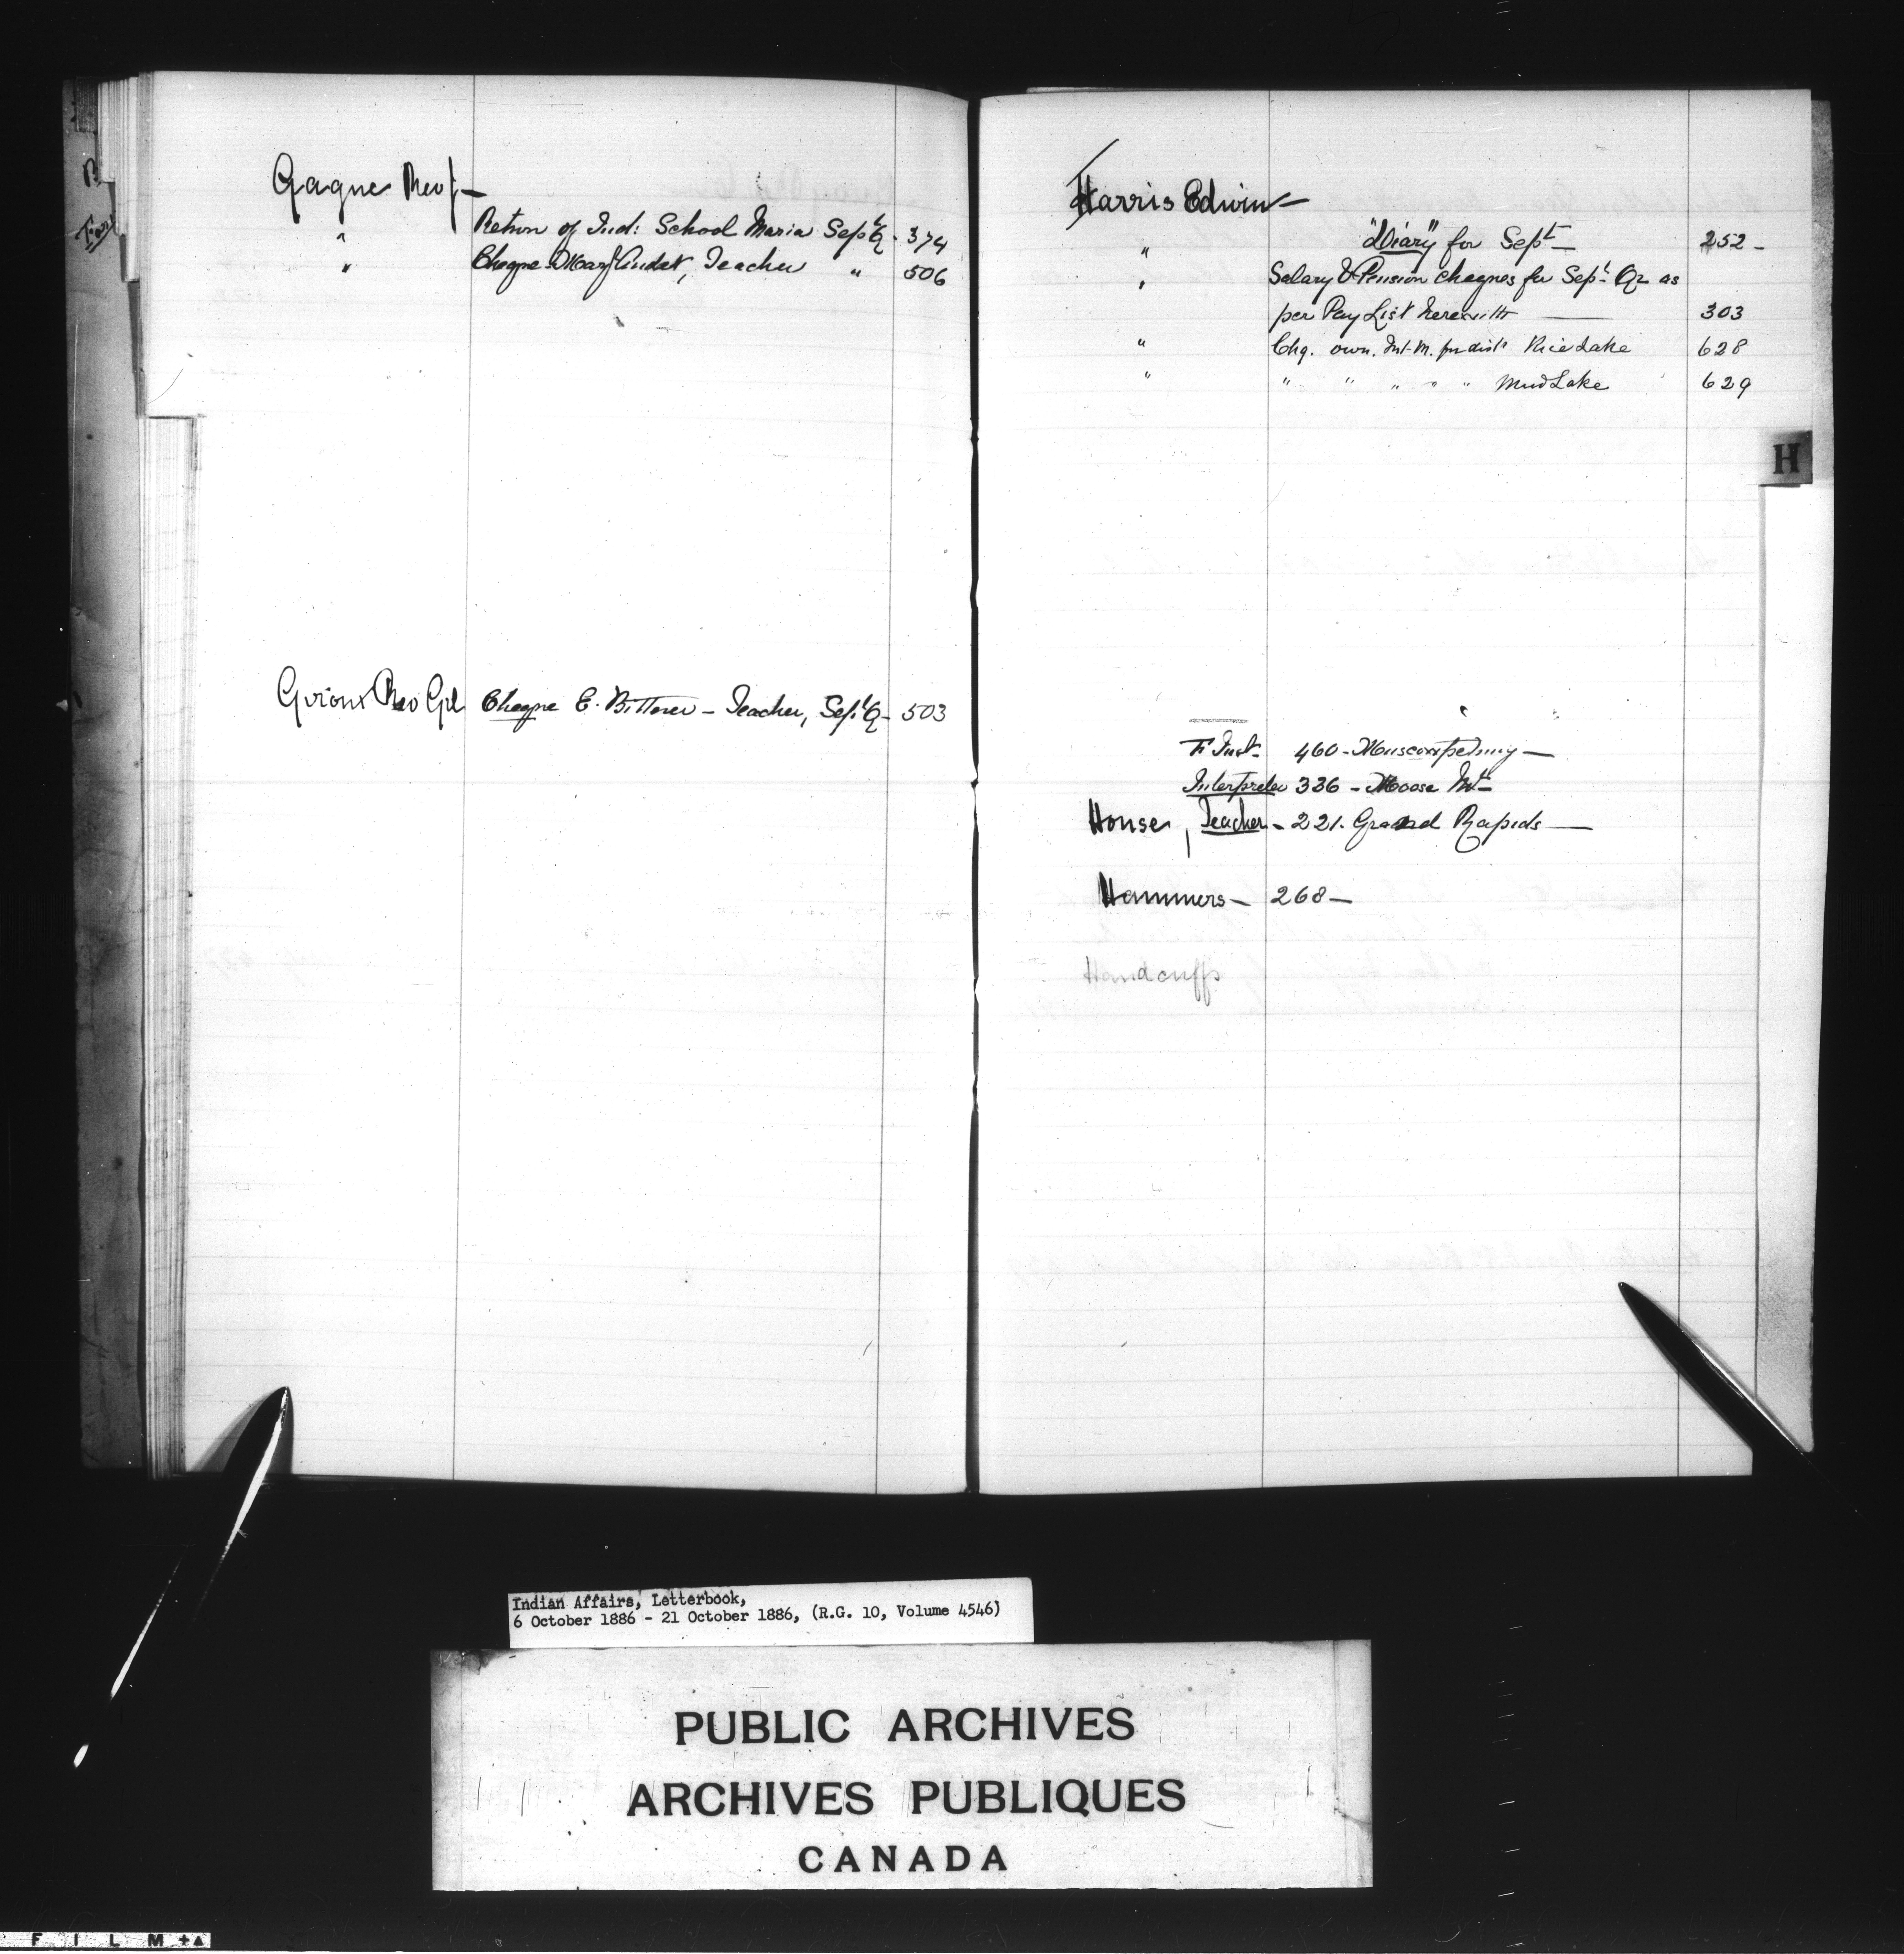 Gagne Rev J -
" Return of Ind: School Maria Sept Q - 374
" Cheque Mary Audet, Teacher " 506
Giroux Rev Gil Cheque E. - Teacher, Sept Q - 503
Harris Edwin -
" "Diary" for Sept - 252 -
" Salary & Pension cheques for Sept Qr as
per Pay List herewith — 303
" Chq. own. Int. M. for dist Rice Lake 628
" " " " " " Mud Lake 629
H
F. Inst - 460 - Muscowpetung —
Interpreter 336 - Moose Mt -
House, Teacher - 221. Grand Rapids —
Hammers - 268 -
Handcuffs
Indian Affairs, Letterbook,
6 October 1886 - 21 October 1886, (R.G. 10, Volume 4546)
PUBLIC ARCHIVES
ARCHIVES PUBLIQUES
CANADA
F I L M